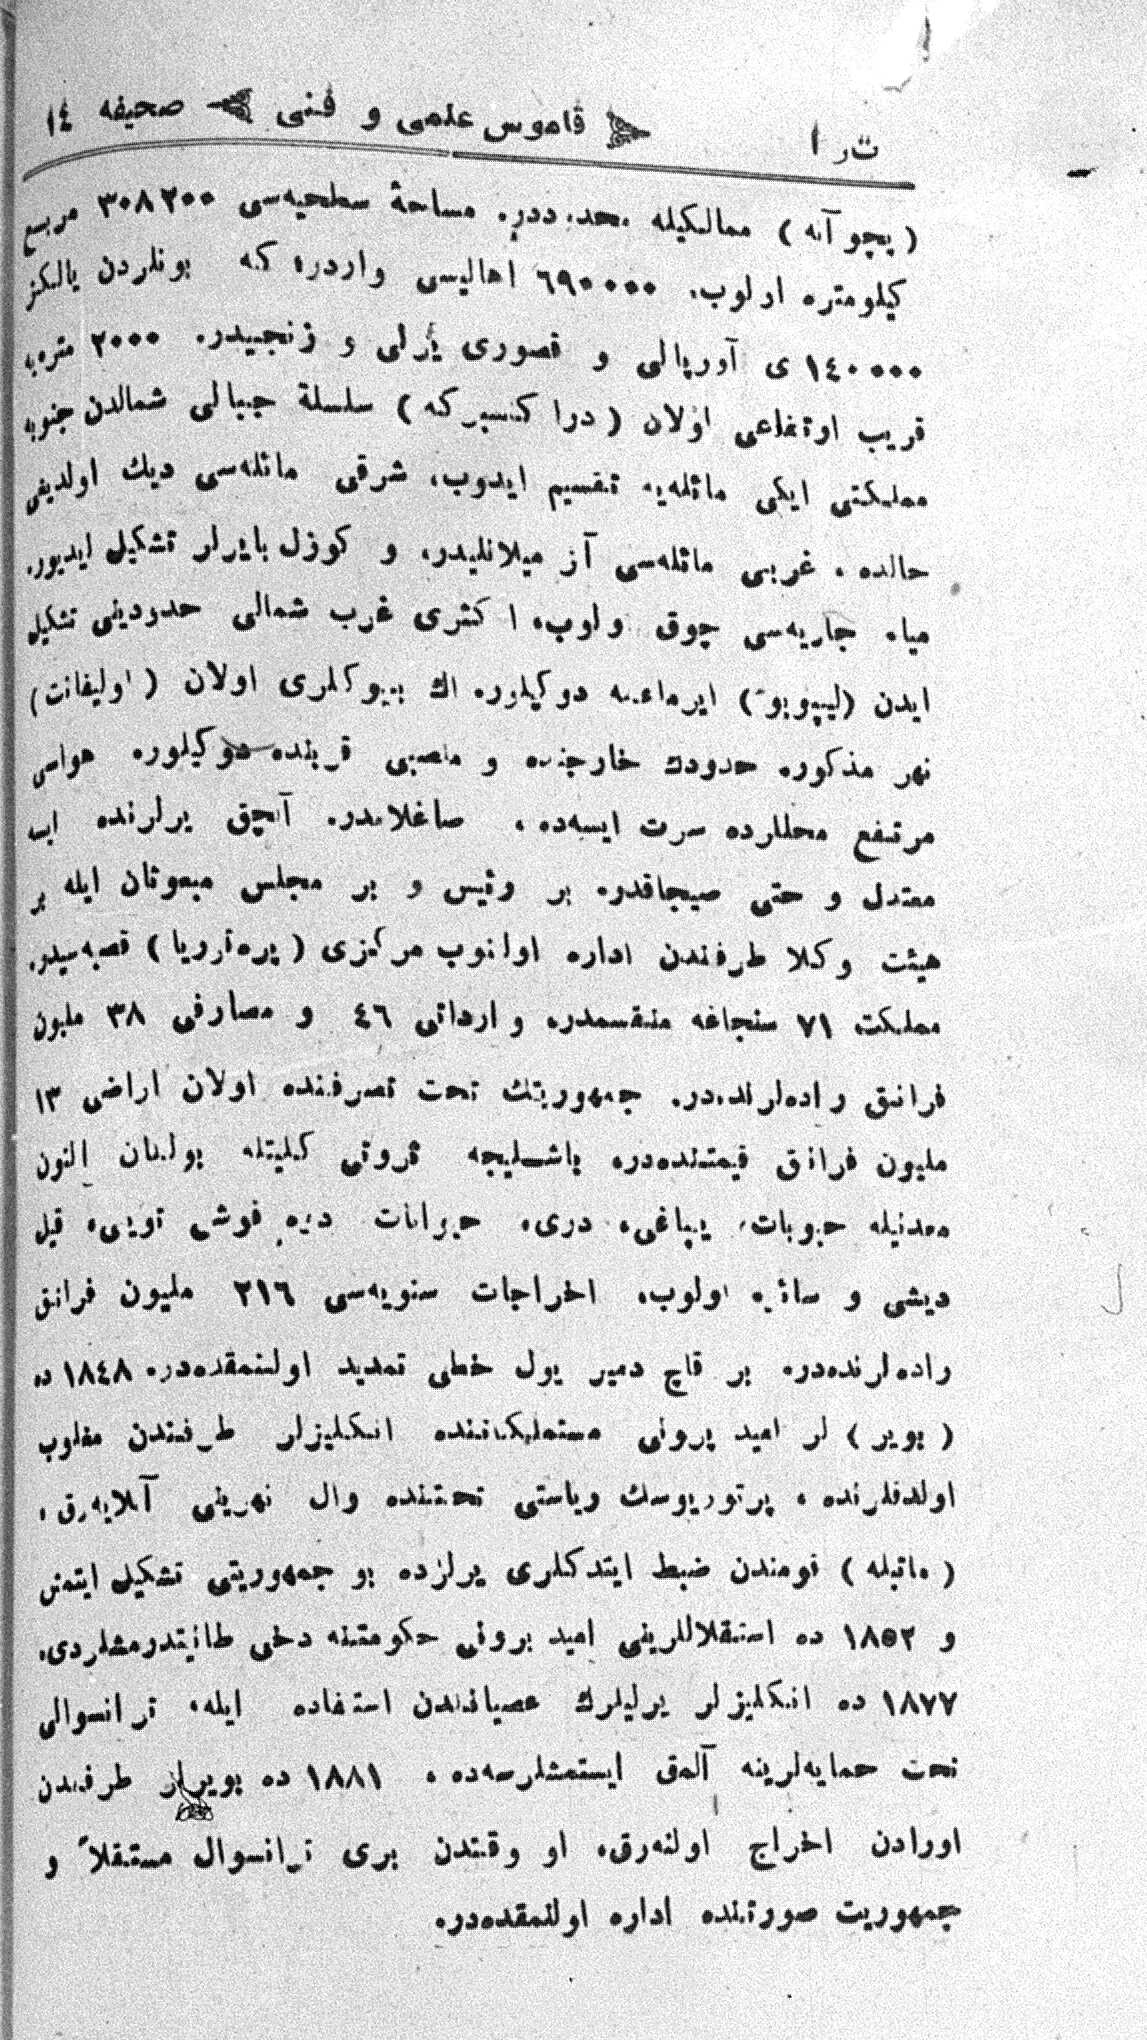 ترا قاموس علمی و فنی صحیفه ١٤
(پچوآنه) ممالکیله محدوددر. مساحهٔ سطحیه‌سی ٣٠٨٢٠٠ مربع
کیلومتره اولوب، ٦٩٠٠٠٠ اهالیسی واردر، که بونلردن یالکز
١٤٠٠٠٠ ی آورپالی و قصوری یرلی و زنجیدر. ٢٠٠٠ متره‌یه
قریب ارتفاعی اولان (دراکنسبرکه) سلسلهٔ جبالی شمالدن جنوبه
مملکتی ایکی مائله‌یه تقسیم ایدوب، شرقی مائله‌سی دیك اولدیغی
حالده، غربی مائله‌سی آز میلانلیدر، و کوزل بایرلر تشکیل ایدیور.
میاه جاریه‌سی چوق اولوب، اکثری غرب شمالی حدودینی تشکیل
ایدن (لیپوپو) ایرماغنه دوکیلور. اك بیوکلری اولان (اولیفانت)
نهر مذکوره حدودك خارجنده و منصبی قربنده دوکیلور. هواسی
مرتفع محللرده سرت ایسه‌ده، صاغلامدر. آلچق یرلرنده ایسه
معتدل و حتی صیجاقدر. بر رئیس و بر مجلس مبعوثان ایله بر
هیئت وکلا طرفندن اداره اولنوب مرکزی (پره‌توریا) قصبه‌سیدر.
مملکت، ٧١ سنجاغه منقسمدر. وارداتی ٤٦ و مصارفی ٣٨ ملیون
فرانق راده‌لرنده‌در. جمهوریتك تحت تصرفنده اولان اراضی ١٣
ملیون فرانق قیمتنده‌در. باشلیجه ثروتی کلیتله بولنان التون
معدنیله حبوبات، یپاغی، دری، حیوانات دوه قوشی تویی، فیل
دیشی و سائره اولوب، اخراجات سنویه‌سی ٢١٦ ملیون فرانق
راده‌لرنده‌در. بر قاچ دمیر یول خطی تمدید اولنمقده‌در. ١٨٤٨ ده
(بویر) لر امید برونی مستملیکاتنده انکلیزلر طرفندن مغلوب
اولدقلرنده، پرتوریوسك ریاستی تحتنده وال نهرینی آتلایه‌رق،
(ماتبله) قومندن ضبط ایتدکلری یرلرده بو جمهوریتی تشکیل ایتمش
و ١٨٥٢ ده استقلاللرینی امید برونی حکومتنه دخی طانیتدرمشلردی.
١٨٧٧ ده انکلیزلر یرلیلرك عصیانندن استفاده ایله، ترانسوالی
تحت حمایه‌لرینه آلمق ایستمشلرسه‌ده، ١٨٨١ ده بویرلر طرفندن
اورادن اخراج اولنه‌رق، او وقتدن بری ترانسوال مستقلاً و
جمهوریت صورتنده اداره اولنمقده‌در.